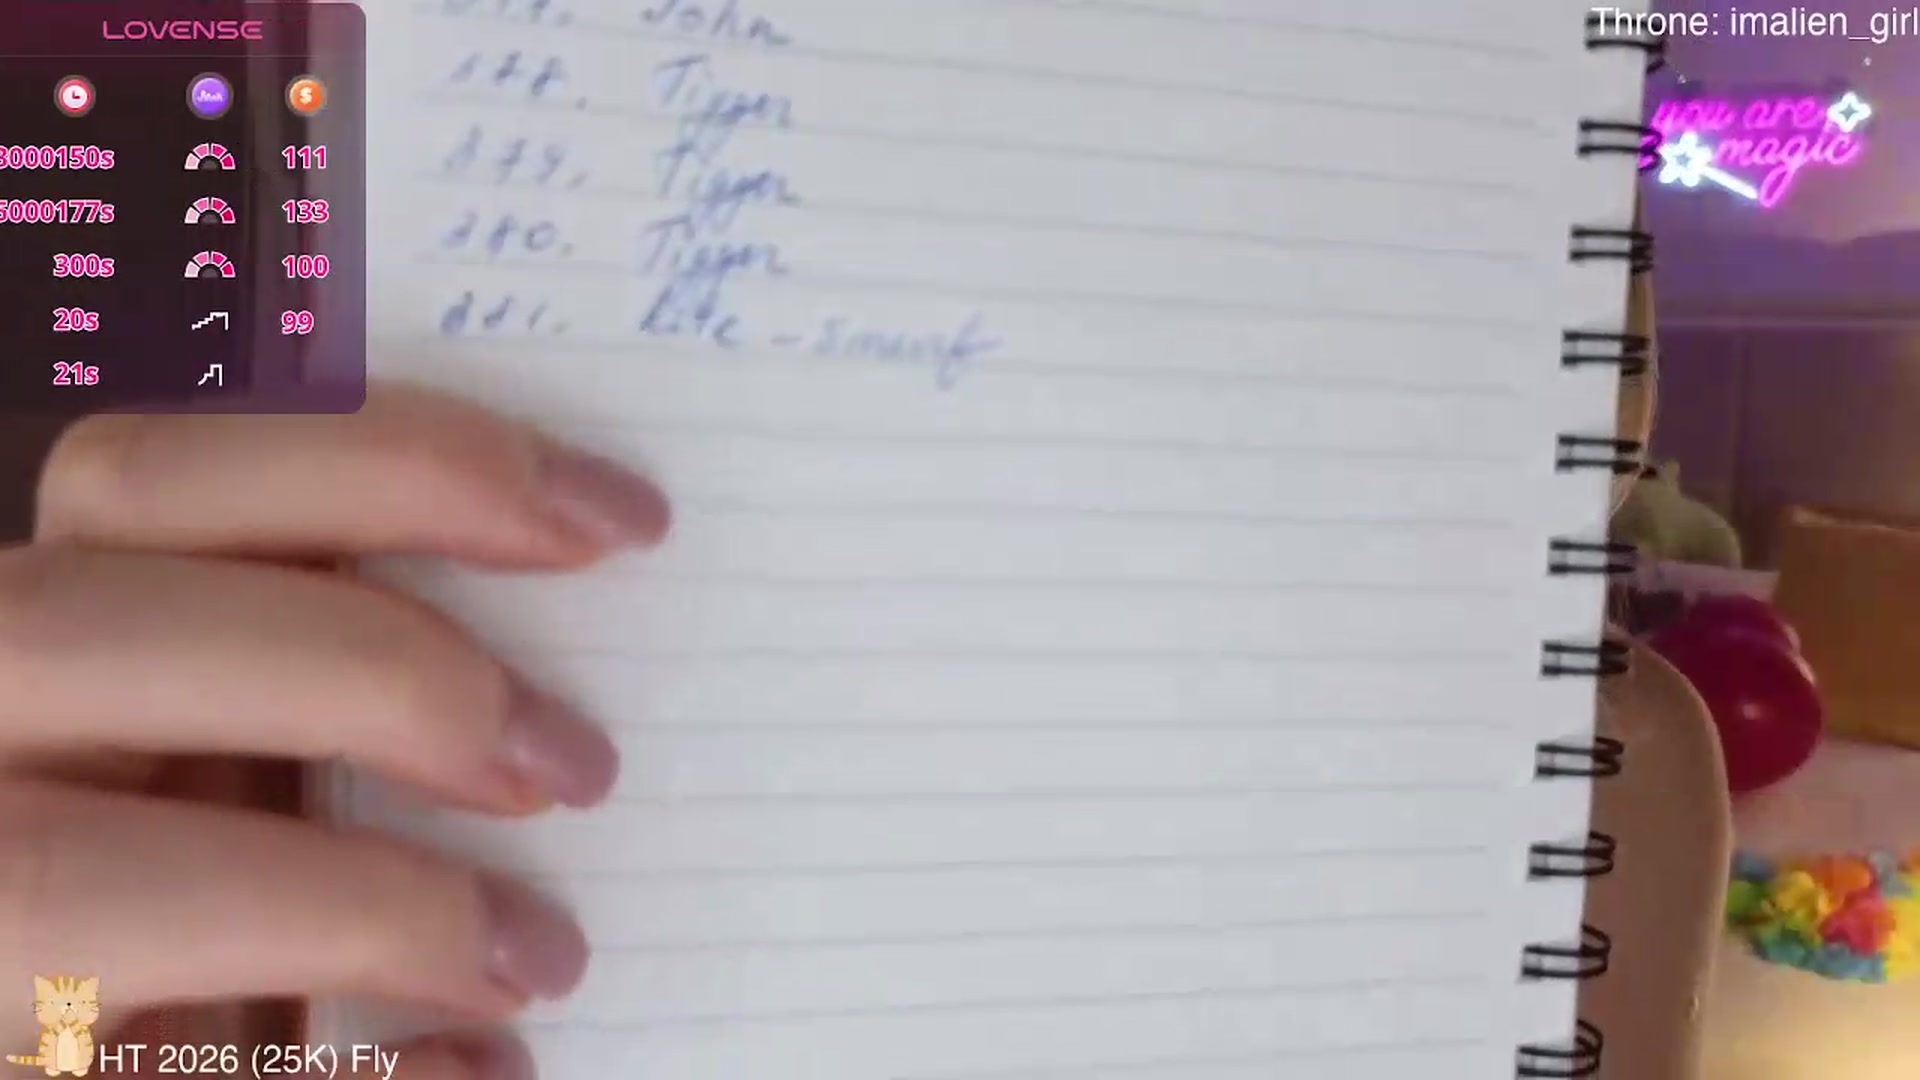 LOVENSE
Throne: imalien_girl
you are
magic
3000150s 111
5000177s 133
300s 100
20s 99
21s
John
878. Tigger
879. Tigger
880. Tigger
881. Kite - Smurf
HT 2026 (25K) Fly